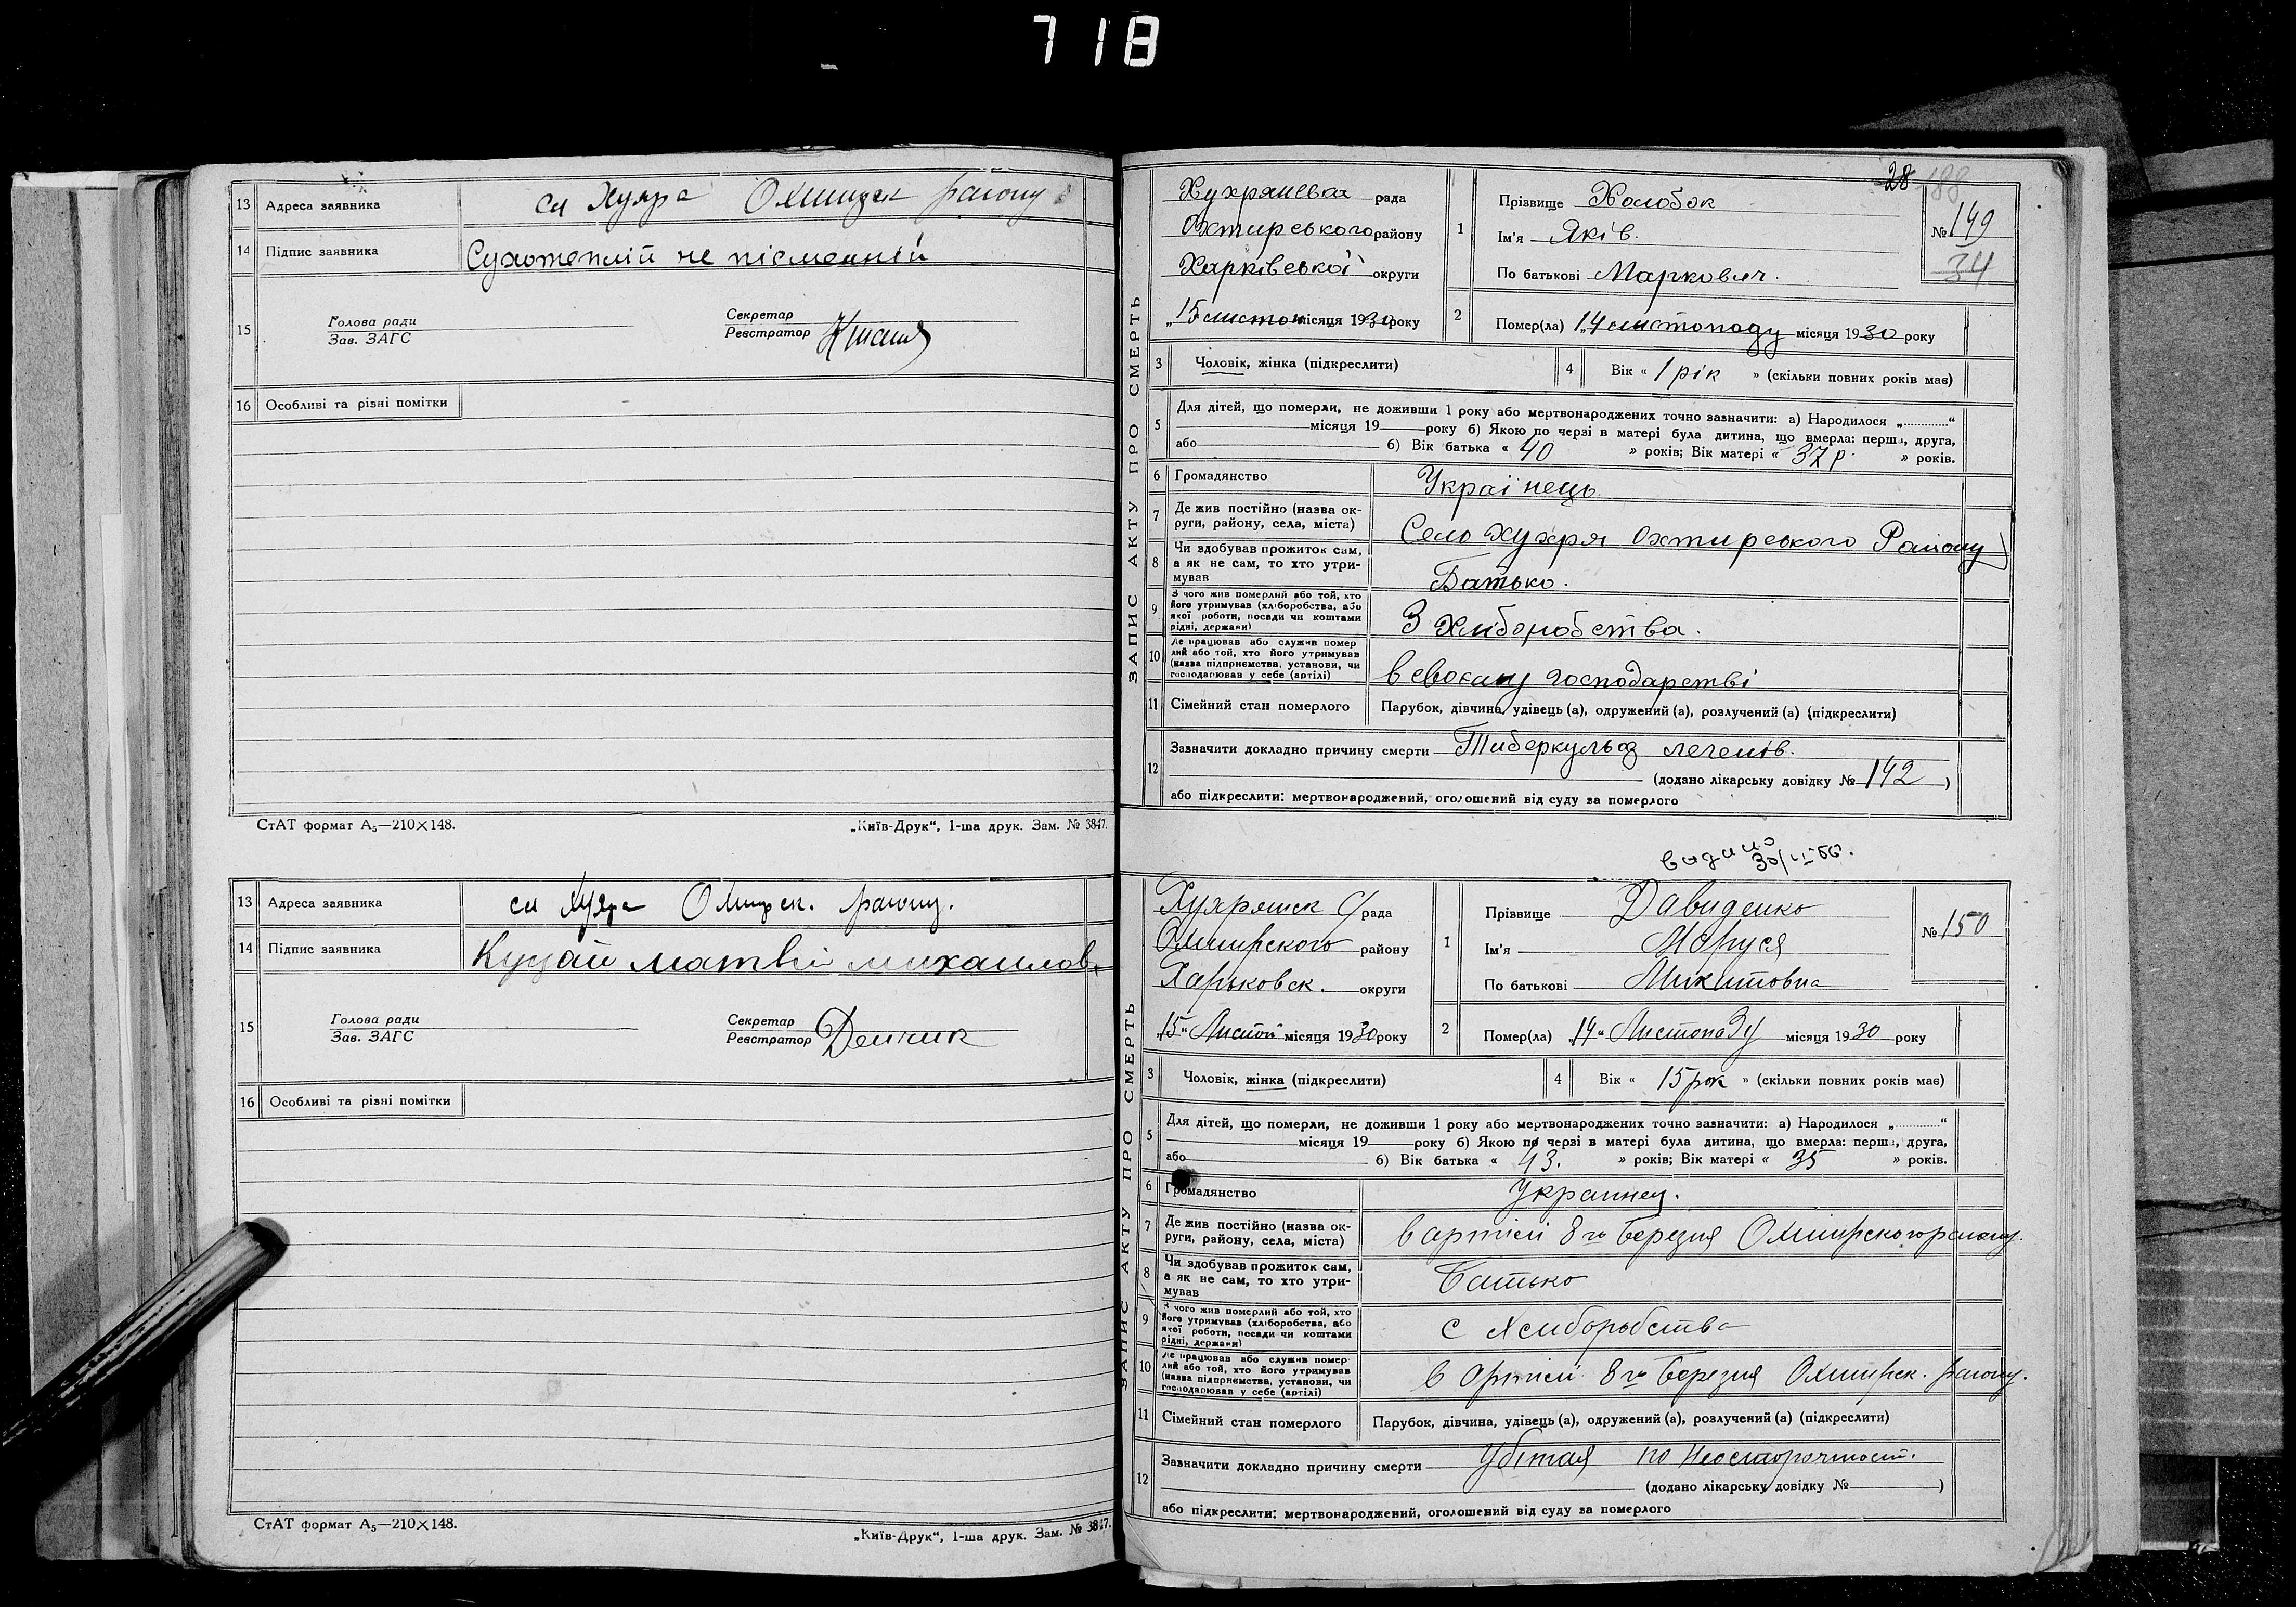 718
13 Адреса заявника сл Хухра Охтирск району
14 Підпис заявника Сухотеплій не пісменній
15 Голова ради
Зав. ЗАГС
Секретар
Реєстратор
16 Особливі та різні помітки
СтАТ формат А5—210×148. „Київ-Друк“, 1-ша друк. Зам. № 3847.
13 Адреса заявника сл Хухра Охтирск. району.
14 Підпис заявника Куцай матвій михаилов.
15 Голова ради
Зав. ЗАГС
Секретар
Реєстратор
16 Особливі та різні помітки
СтАТ формат А5—210×148. „Київ-Друк“, 1-ша друк. Зам. № 3847.
28 188
ЗАПИС АКТУ ПРО СМЕРТЬ
Хухрянська рада
Охтирського району
Харківської округи
„15 листоп місяця 1930 року
1 Прізвище Холобок
Ім'я Яків.
По батькові Маркович.
№ 149
34
2 Помер(ла) „14 листопаду місяця 1930 року
3 Чоловік, жінка (підкреслити)
4 Вік « 1 рік » (скільки повних років має)
5 Для дітей, що померли, не доживши 1 року або мертвонароджених точно зазначити: а) Народилося „............“
місяця 19 року б) Якою по черзі в матері була дитина, що вмерла: перша, друга,
або б) Вік батька « 40 » років; Вік матері « 37 р. » років.
6 Громадянство Українець.
7 Де жив постійно (назва округи, району, села, міста) Село Хухря Охтирського Району
8 Чи здобував прожиток сам, а як не сам, то хто утримував Батько.
9 З чого жив померлий або той, хто його утримував (хліборобства, або якої роботи, посади чи коштами рідні, держави) З Хліборобства.
10 Де працював або служив померлий або той, хто його утримував (назва підприємства, установи, чи господарював у себе (артілі) В своєму господарстві
11 Сімейний стан померлого Парубок, дівчина, удівець (а), одружений (а), розлучений (а) (підкреслити)
12 Зазначити докладно причину смерти Тиберкульоз легенів.
(додано лікарську довідку № 142 )
або підкреслити: мертвонароджений, оголошений від суду за померлого
видано
ЗАПИС АКТУ ПРО СМЕРТЬ
Хухрянск с/рада
Охтирского району
Харьковск. округи
„15“ Листоп місяця 1930 року
1 Прізвище Давиденко
Ім'я Маруся
По батькові Микитовна
№ 150
2 Помер(ла) „14“ Листопаду місяця 1930 року
3 Чоловік, жінка (підкреслити)
4 Вік « 15 рок » (скільки повних років має)
5 Для дітей, що померли, не доживши 1 року або мертвонароджених точно зазначити: а) Народилося „............“
місяця 19 року б) Якою по черзі в матері була дитина, що вмерла: перша, друга,
або б) Вік батька « 43. » років; Вік матері « 35 » років.
6 Громадянство Украинец.
7 Де жив постійно (назва округи, району, села, міста) в артілі 8го Березня Охтирского району.
8 Чи здобував прожиток сам, а як не сам, то хто утримував Батько
9 З чого жив померлий або той, хто його утримував (хліборобства, або якої роботи, посади чи коштами рідні, держави) с Хлиборобства
10 Де працював або служив померлий або той, хто його утримував (назва підприємства, установи, чи господарював у себе (артілі) в Артілі 8го Березня Охтирск. району.
11 Сімейний стан померлого Парубок, дівчина, удівець (а), одружений (а), розлучений (а) (підкреслити)
12 Зазначити докладно причину смерти Убітая по Неосторожност.
(додано лікарську довідку № )
або підкреслити: мертвонароджений, оголошений від суду за померлого